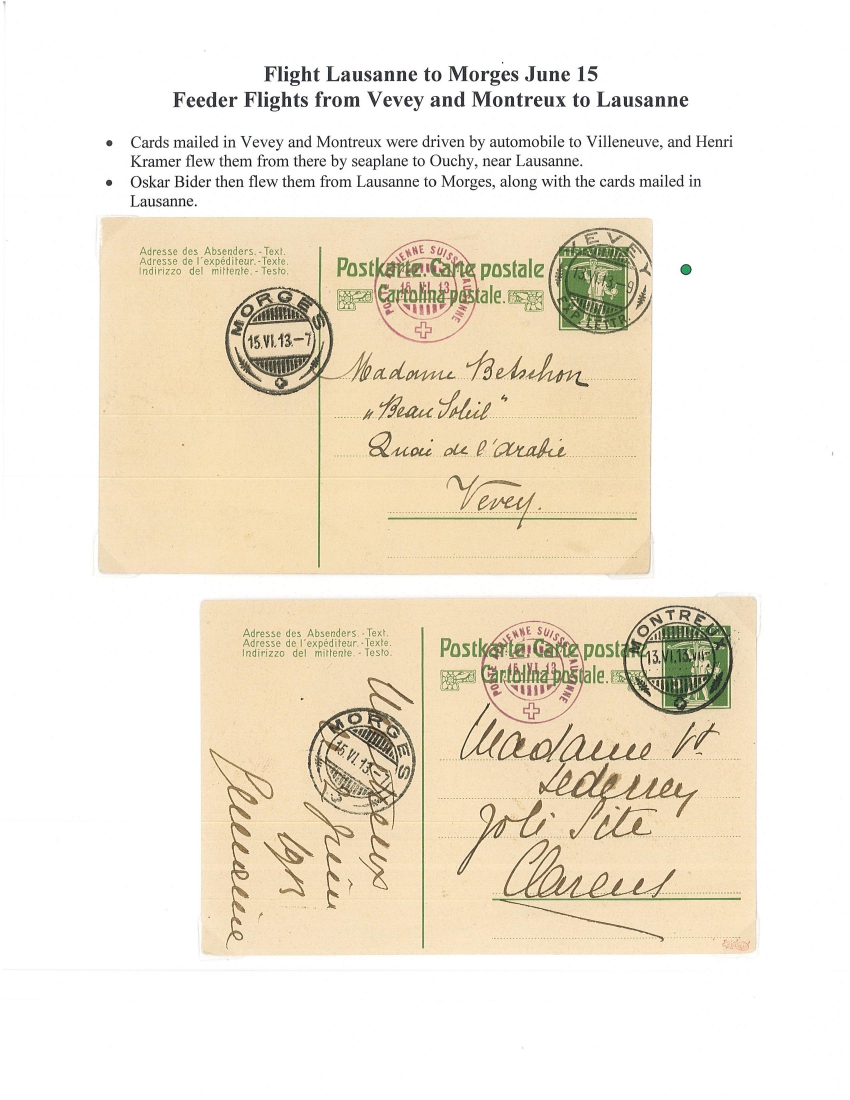 Flight Lausanne to Morges June 15
Feeder Flights from Vevey and Montreux to Lausanne
• Cards mailed in Vevey and Montreux were driven by automobile to Villeneuve, and Henri
Kramer flew them from there by seaplane to Ouchy, near Lausanne.
• Oskar Bider then flew them from Lausanne to Morges, along with the cards mailed in
Lausanne.
Adresse des Absenders.-Text.
Adresse de l'expéditeur.-Texte.
Indirizzo del mittente.-Testo.
Postkarte. Carte postale
Cartolina postale.
POSTE AÉRIENNE SUISSE LAUSANNE
15 VI 13
VEVEY
13.VI.13.-9
EXP. LETTR.
MORGES
15.VI.13.-7
Madame Betschon
„Beau Soleil"
Quai de l'Arabie
Vevey.
Adresse des Absenders.-Text.
Adresse de l'expéditeur.-Texte.
Indirizzo del mittente.-Testo.
Postkarte. Carte postale
Cartolina postale.
POSTE AÉRIENNE SUISSE LAUSANNE
15 VI 13
MONTREUX
13.VI.13.VII-
MORGES
15.VI.13.-7
Madame
Lederrey
Joli Site
Clarens
15
juin
1913